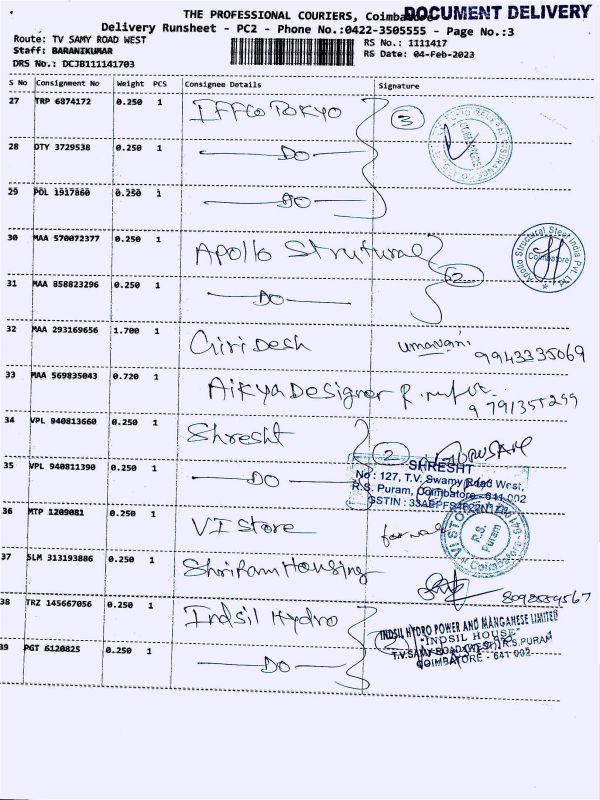 THE PROFESSIONAL COURIERS, Coimbatore
DOCUMENT DELIVERY
Delivery Runsheet - PC2 - Phone No.:0422-3505555 - Page No.:3
Route: TV SAMY ROAD WEST
RS No.: 1111417
Staff: BARANIKUMAR
RS Date: 04-Feb-2023
DRS No.: DCJB111141703
S No Consignment No Weight PCS Consignee Details Signature
27 TRP 6874172 0.250 1 IFFCO TOKYO 3
28 DTY 3729538 0.250 1 DO
29 POL 1917860 0.250 1 DO
30 MAA 570072377 0.250 1 Apollo Strutural 2
Apollo Structural Steel India Pvt. Ltd.
Coimbatore
31 MAA 858823296 0.250 1 DO
32 MAA 293169656 1.700 1 Giri Desh
9943335069
33 MAA 569835043 0.720 1 Aikya Designer
34 VPL 940813660 0.250 1 Shresht 2
SHRESHT
No : 127, T.V. Swamy Road West,
R.S. Puram, Coimbatore - 641 002
35 VPL 940811390 0.250 1 DO
36 MTP 1209081 0.250 1 VI Store
R.S. Puram
37 SLM 313193886 0.250 1 Shri Ram Housing
38 TRZ 145667056 0.250 1 Indsil Hydro
INDSIL HYDRO POWER AND MANGANESE LIMITED
"INDSIL HOUSE"
T.V. SAMY ROAD (WEST), R.S. PURAM
COIMBATORE - 641 002
39 PGT 6120825 0.250 1 DO